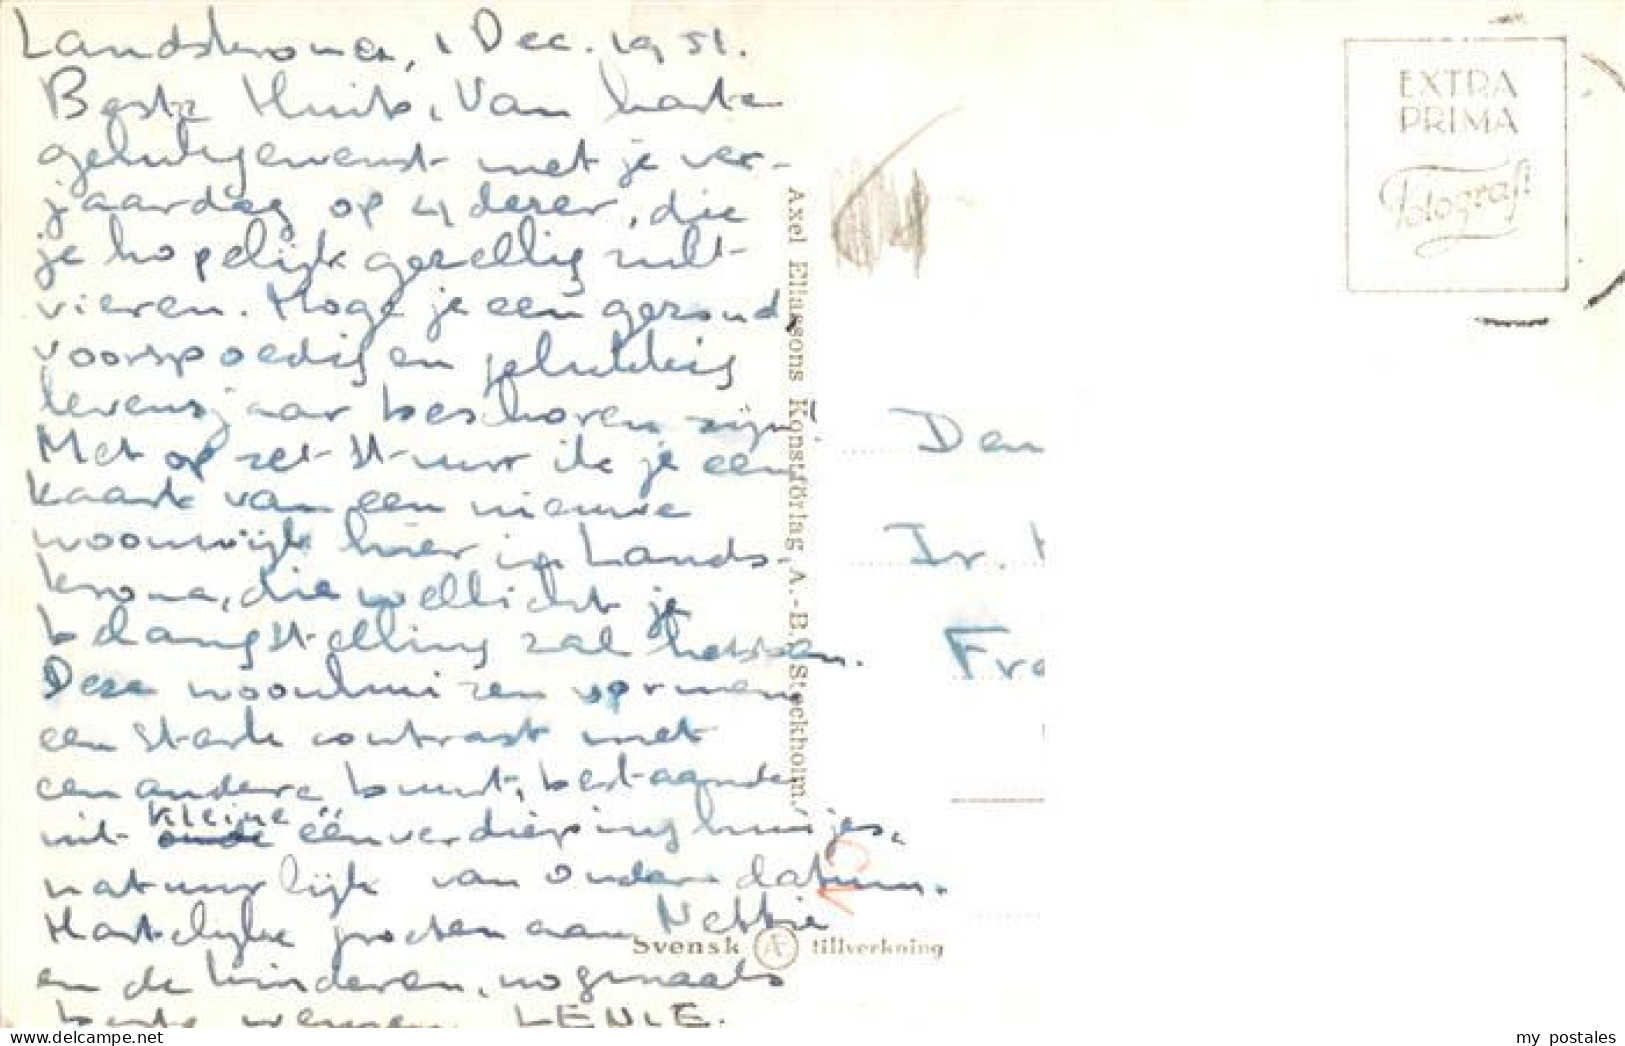 Landskrona, 1 Dec. 1951.
Beste Huib, Van harte
gelukgewenst met je ver-
jaardag op 4 dezer, die
je hopelijk gezellig zult
vieren. Moge je een gezond
voorspoedig en gelukkig
levensjaar beschoren zijn!
Met opzet stuur ik je een
kaart van een nieuwe
woonwijk hier in Lands-
krona, die wellicht je
belangstelling zal hebben.
Deze woonhuizen vormen
een sterk contrast met
een andere buurt, bestaande
uit kleine éénverdiepinghuisjes,
natuurlijk van oudere datum.
Hartelijke groeten aan Nettie
en de kinderen, nogmaals
beste wensen, LENIE.
Axel Eliassons Konstförlag A.-B. Stockholm.
Svensk AE tillverkning
EXTRA
PRIMA
Fotografi
Den
Ir.
Fra
my postales